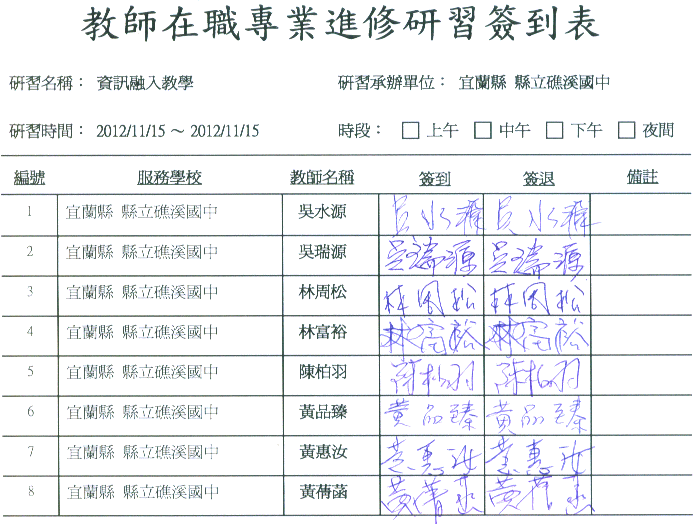 教師在職專業進修研習簽到表
研習名稱： 資訊融入教學 研習承辦單位： 宜蘭縣 縣立礁溪國中
研習時間： 2012/11/15 ～ 2012/11/15 時段： □ 上午 □ 中午 □ 下午 □ 夜間
編號 服務學校 教師名稱 簽到 簽退 備註
1 宜蘭縣 縣立礁溪國中 吳水源 吳水源 吳水源
2 宜蘭縣 縣立礁溪國中 吳瑞源 吳瑞源 吳瑞源
3 宜蘭縣 縣立礁溪國中 林周松 林周松 林周松
4 宜蘭縣 縣立礁溪國中 林富裕 林富裕 林富裕
5 宜蘭縣 縣立礁溪國中 陳柏羽 陳柏羽 陳柏羽
6 宜蘭縣 縣立礁溪國中 黃品臻 黃品臻 黃品臻
7 宜蘭縣 縣立礁溪國中 黃惠汝 黃惠汝 黃惠汝
8 宜蘭縣 縣立礁溪國中 黃蒨菡 黃蒨菡 黃蒨菡